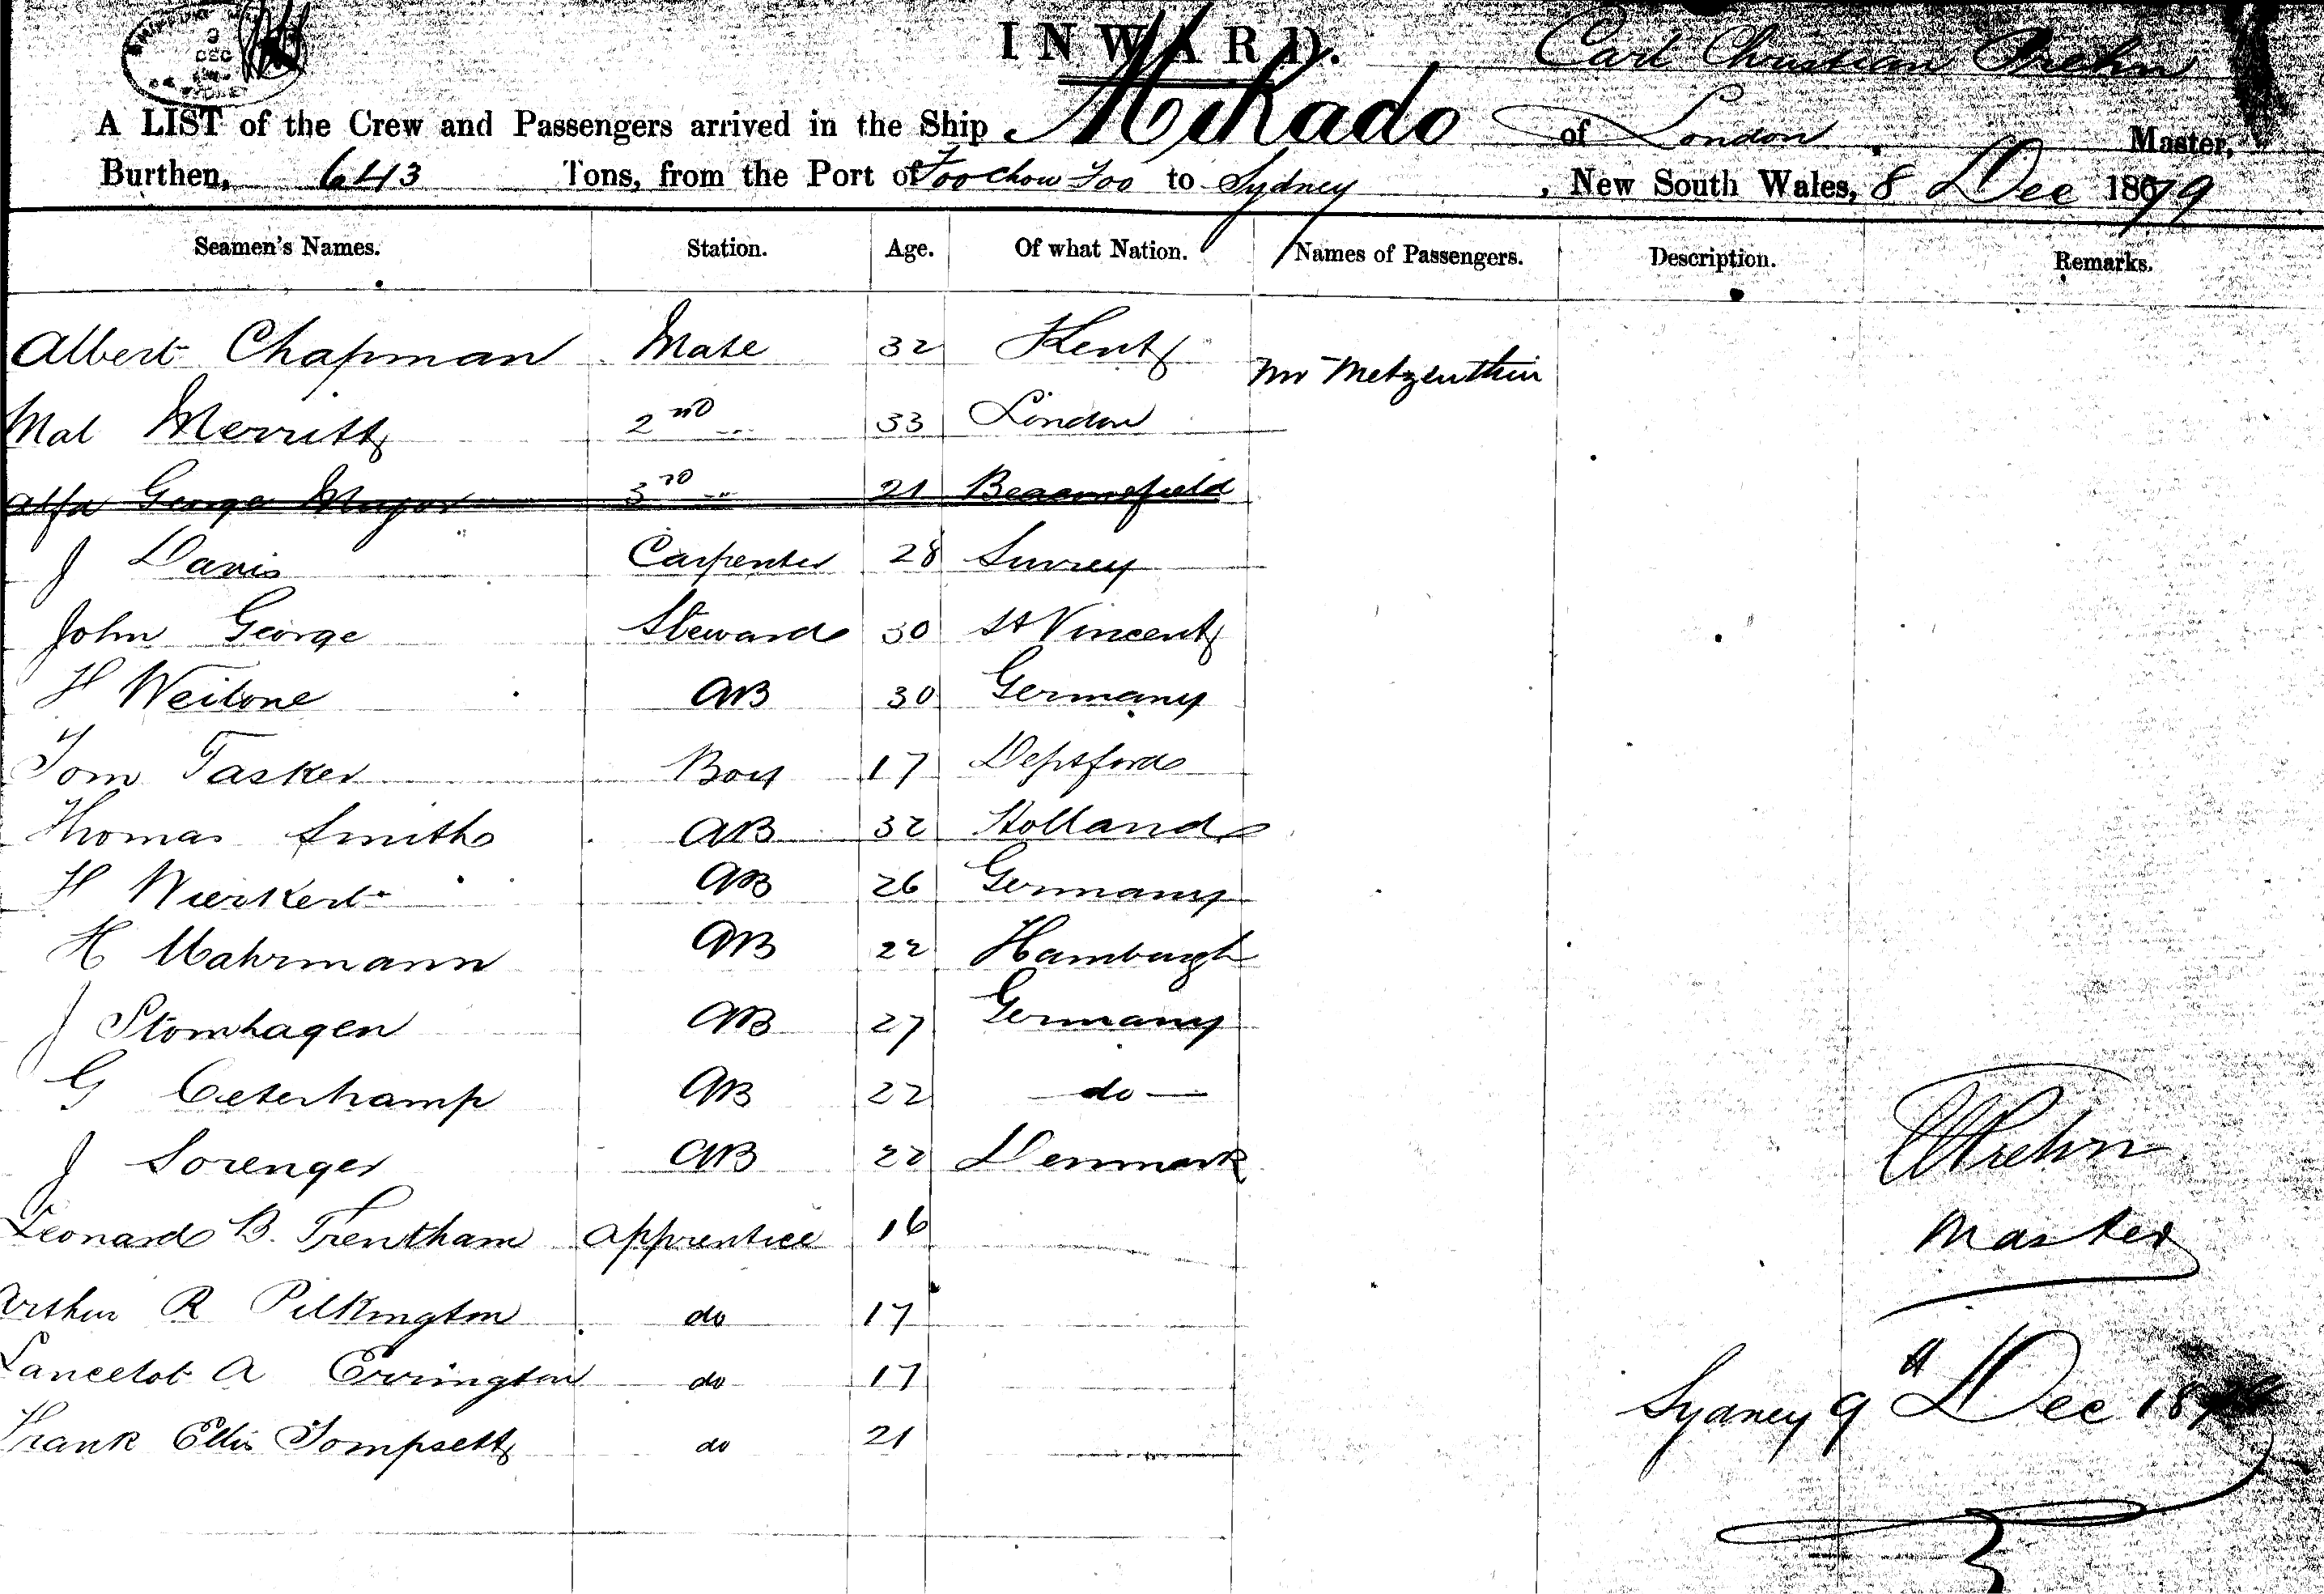 9
DEC
SYDNEY
INWARD.
Carl Christian Prehn
A LIST of the Crew and Passengers arrived in the Ship Mikado of London Master,
Burthen, 643 Tons, from the Port of Foo Chow Foo to Sydney, New South Wales, 8 Dec 1879
Seamen's Names. Station. Age. Of what Nation. Names of Passengers. Description. Remarks.
Albert Chapman Mate 32 Kent Mr Metzenthin
Mat Merritt 2nd " 33 London
Alfd George 3rd " 21 Beaconsfield
J Davis Carpenter 28 Surrey
John George Steward 30 St Vincent
H Weitone AB 30 Germany
Tom Tasker Boy 17 Deptford
Thomas Smith AB 32 Holland
H Wierkert AB 26 Germany
H Mahrmann AB 22 Hamburgh
J Stomhagen AB 27 Germany
G Oeterhamp AB 22 do
J Sorenger AB 22 Denmark
Leonard B. Trentham Apprentice 16
Arthur R Pilkington do 17
Lancelot A Errington do 17
Frank Ellis Tompsett do 21
CCPrehn
Master
Sydney 9th Dec